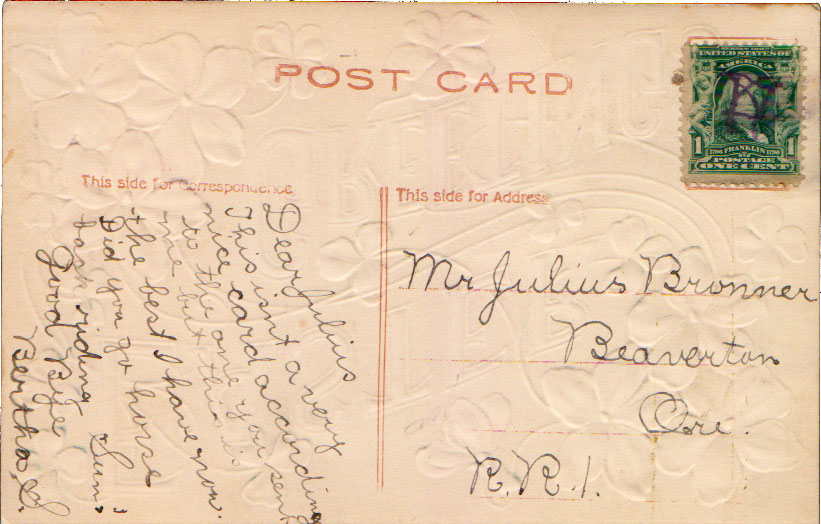 POST CARD
SERIES 1902
UNITED STATES OF
AMERICA
1 1706 FRANKLIN 1790 1
POSTAGE
ONE CENT
This side for Correspondence
Dear Julius
This isnt a very
nice card according
to the one you sent
me but this is
the best I have now.
Did you go horse
back riding Sun.
Good Bye
Bertha, S.
This side for Address
Mr Julius Bronner
Beaverton
Ore.
R.R.1.